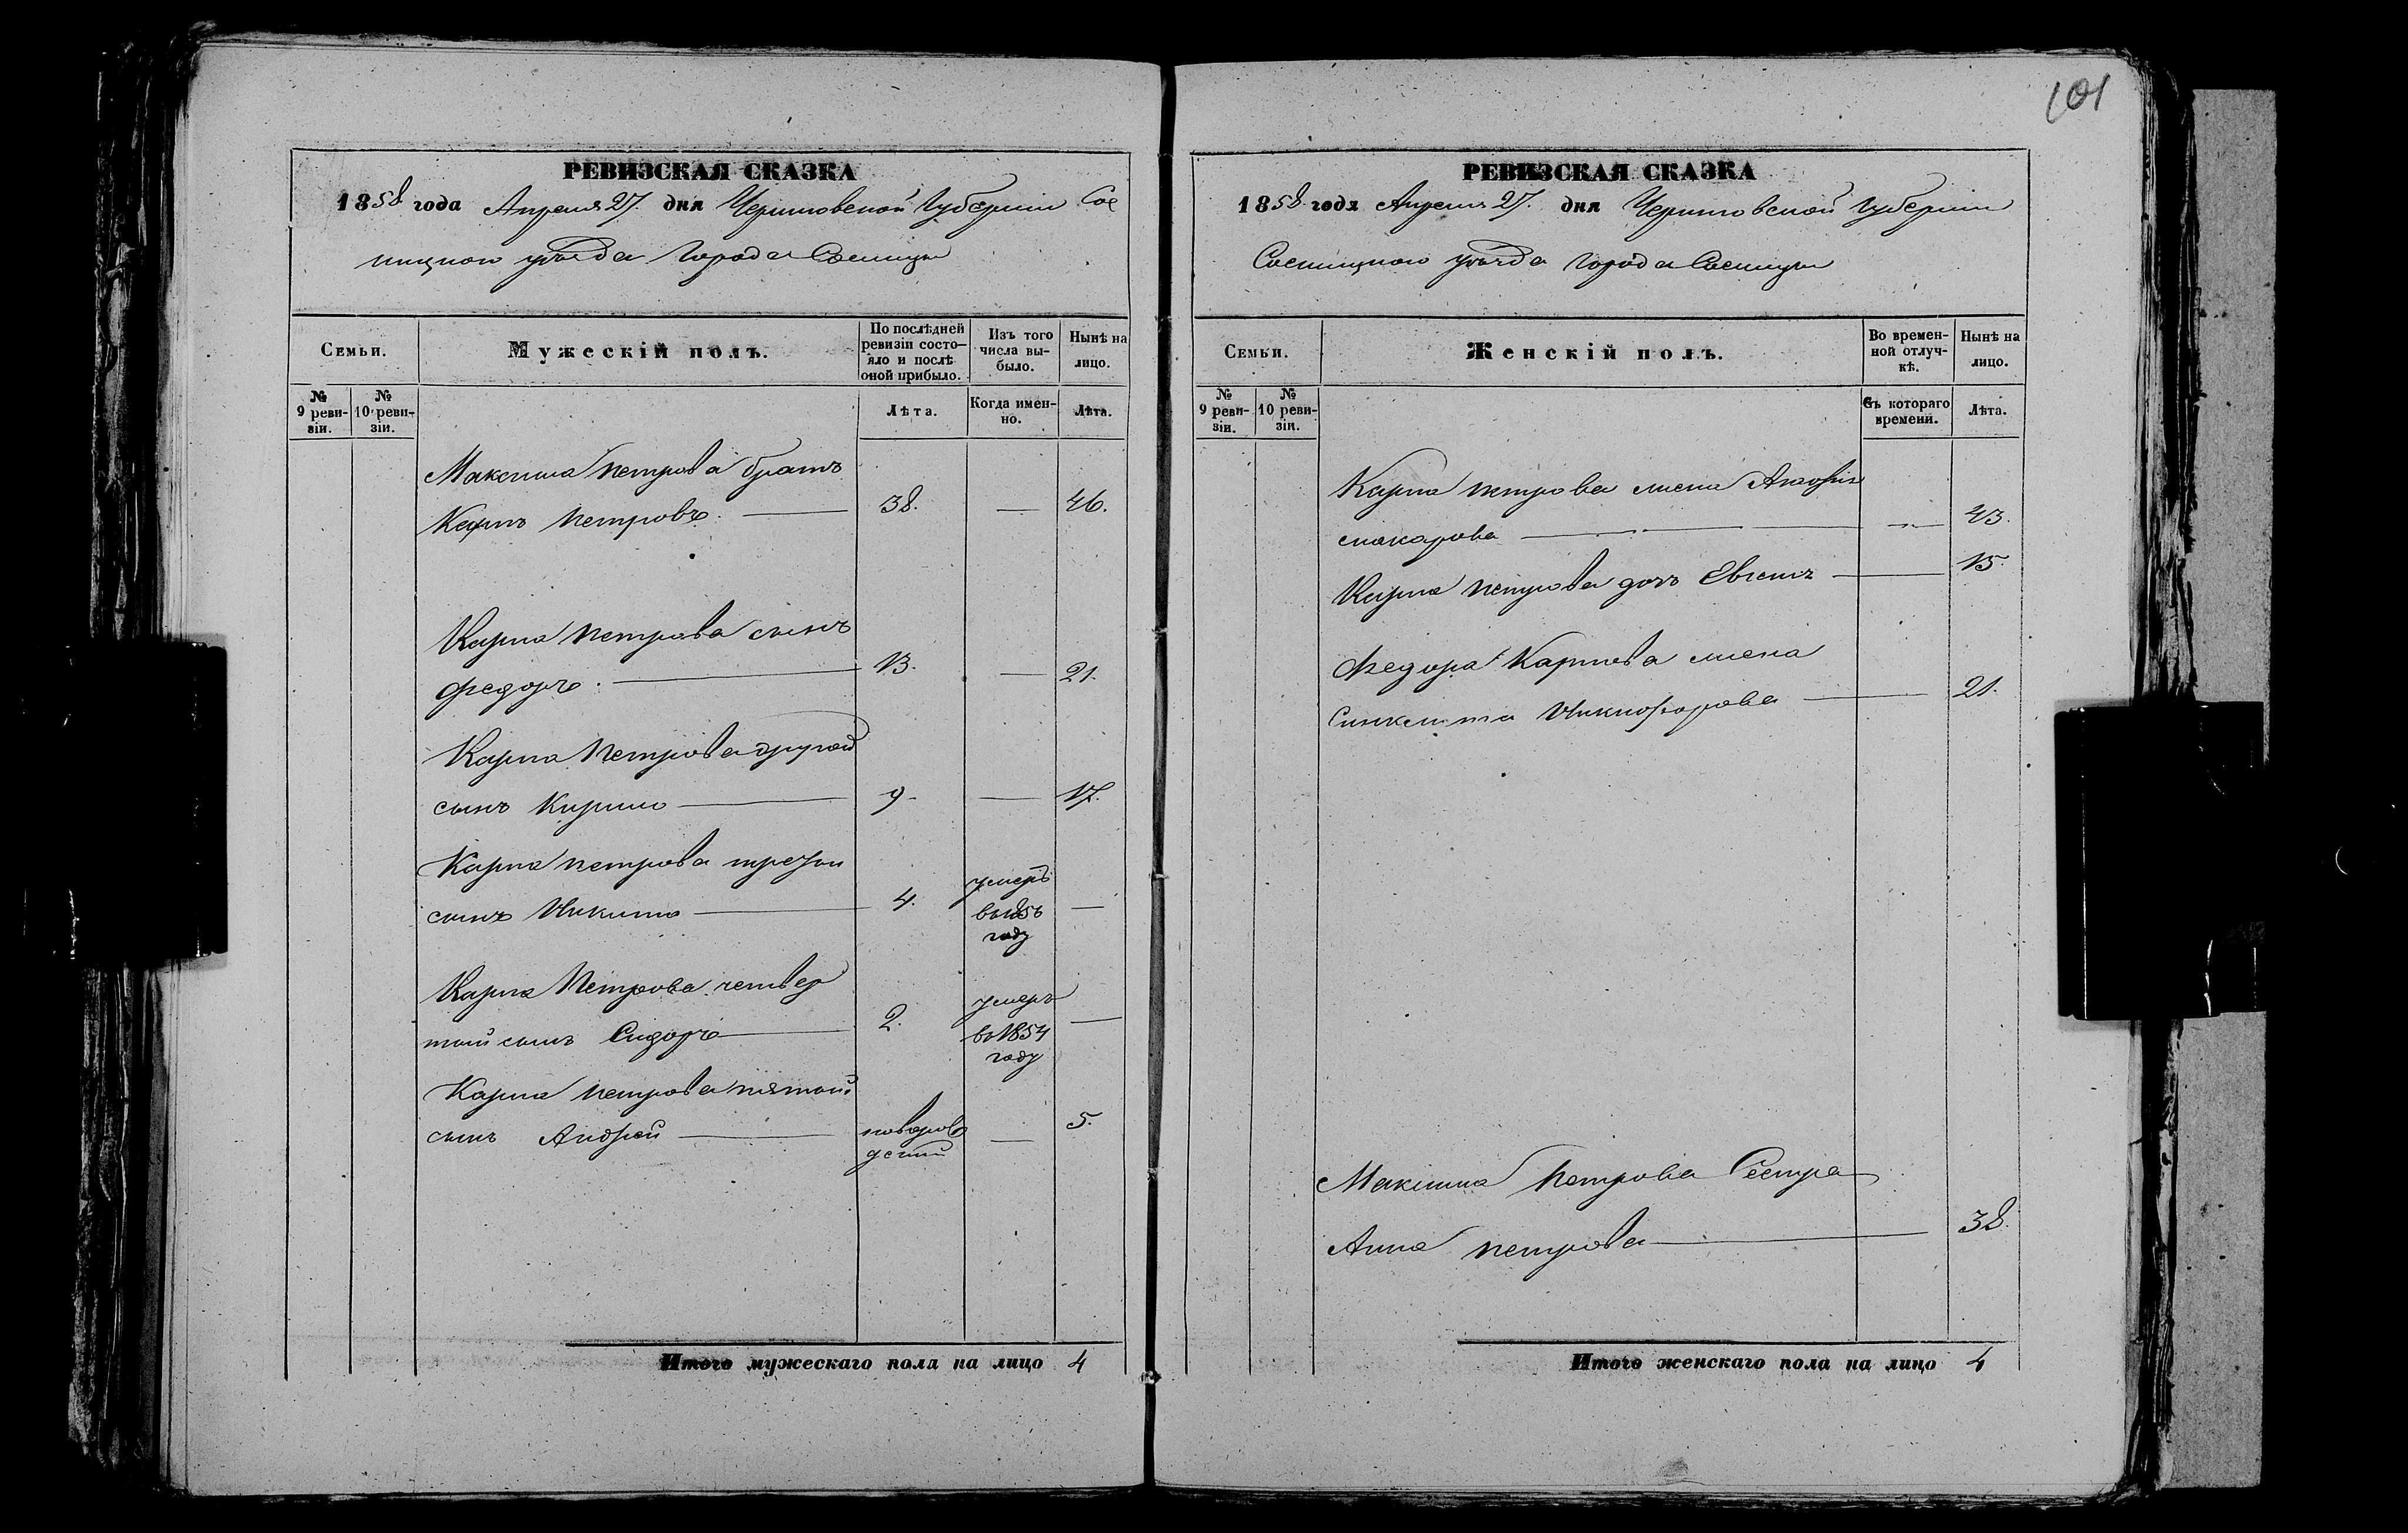 101
РЕВИЗСКАЯ СКАЗКА
1858 года Апреля 27. дня Черниговской Губернии Сос
ницкого уѣзда Города Сосницы
Семьи.
Мужескій полъ.
По послѣдней ревизіи состояло и послѣ оной прибыло.
Изъ того числа выбыло.
Нынѣ на лицо.
№ 9 ревизіи.
№ 10 ревизіи.
Лѣта.
Когда именно.
Лѣта.
Максима Петрова братъ
Карпъ Петровъ. 38. — 46.
Карпа Петрова сынъ
Федоръ. 13. — 21.
Карпа Петрова другой
сынъ Кирило 9. — 17.
Карпа Петрова третій
сынъ Никита 4. умеръ в 185 году —
Карпа Петрова четвер
тый сынъ Сидоръ 2. умеръ в 1854 году —
Карпа Петрова пятый
сынъ Андрей новорож денный — 5.
Итого мужескаго пола на лицо 4
РЕВИЗСКАЯ СКАЗКА
1858 года Апреля 27. дня Черниговской Губернии
Сосницкого уѣзда Города Сосницы
Семьи.
Женскій полъ.
Во временной отлучкѣ.
Нынѣ на лицо.
№ 9 ревизіи.
№ 10 ревизіи.
Съ котораго времени.
Лѣта.
Карпа Петрова жена
Макарова — 43.
Карпа Петрова дочь 15.
Федора Карпова жена
Синклита Никифорова 21.
Максима Петрова Сестра
Анна Петрова 38.
Итого женскаго пола на лицо 4